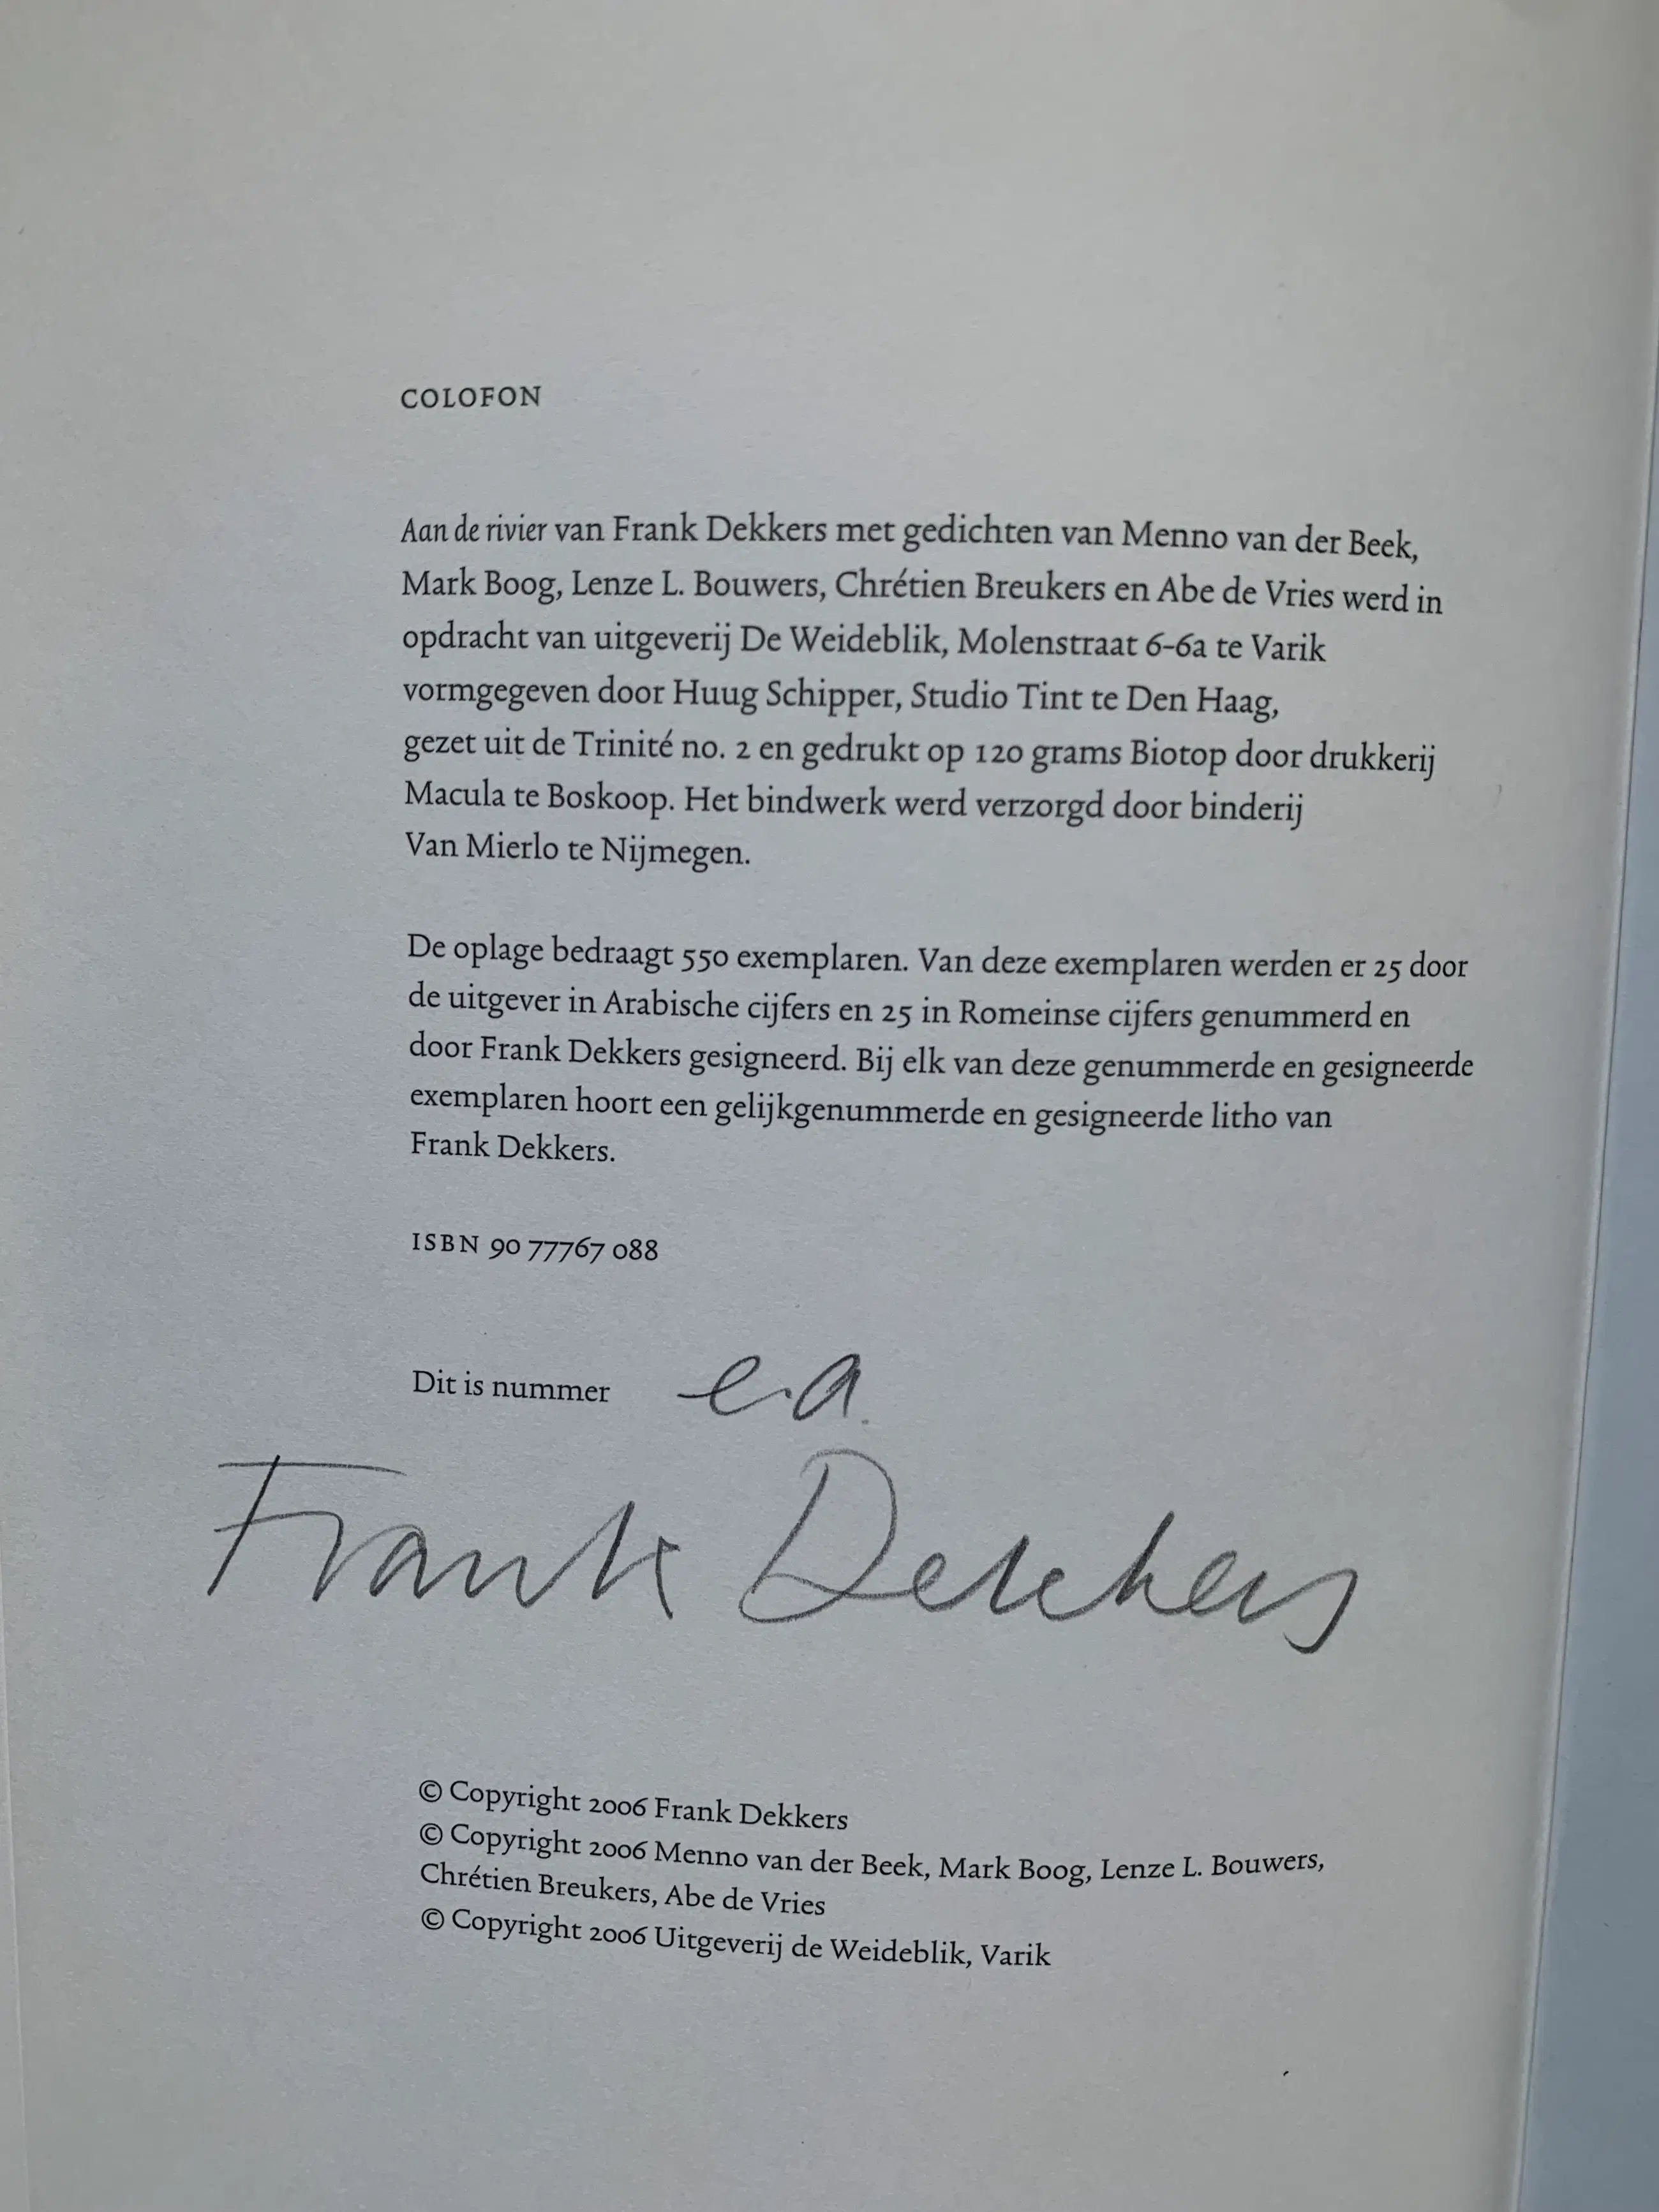 COLOFON
Aan de rivier van Frank Dekkers met gedichten van Menno van der Beek,
Mark Boog, Lenze L. Bouwers, Chrétien Breukers en Abe de Vries werd in
opdracht van uitgeverij De Weideblik, Molenstraat 6-6a te Varik
vormgegeven door Huug Schipper, Studio Tint te Den Haag,
gezet uit de Trinité no. 2 en gedrukt op 120 grams Biotop door drukkerij
Macula te Boskoop. Het bindwerk werd verzorgd door binderij
Van Mierlo te Nijmegen.
De oplage bedraagt 550 exemplaren. Van deze exemplaren werden er 25 door
de uitgever in Arabische cijfers en 25 in Romeinse cijfers genummerd en
door Frank Dekkers gesigneerd. Bij elk van deze genummerde en gesigneerde
exemplaren hoort een gelijkgenummerde en gesigneerde litho van
Frank Dekkers.
ISBN 90 77767 088
Dit is nummer e.a.
Frank Dekkers
© Copyright 2006 Frank Dekkers
© Copyright 2006 Menno van der Beek, Mark Boog, Lenze L. Bouwers,
Chrétien Breukers, Abe de Vries
© Copyright 2006 Uitgeverij de Weideblik, Varik